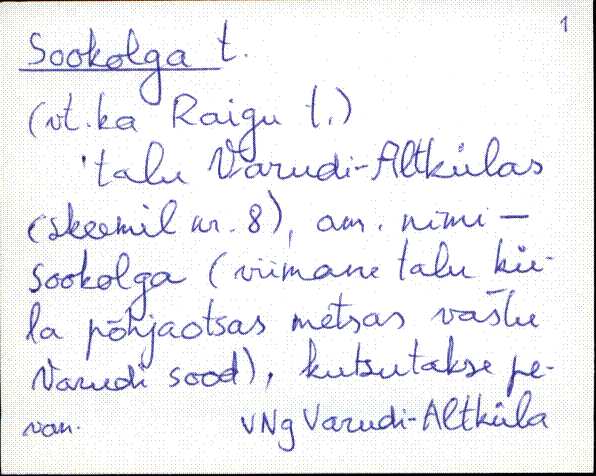 1
Sookolga t.
(vt. ka Raigu t.)
'talu Varudi-Altkülas
(skeemil nr. 8), am. nimi –
Sookolga (viimane talu kü-
la põhjaotsas metsas vastu
Varudi sood), kutsutakse pe-
van. VNg Varudi-Altküla